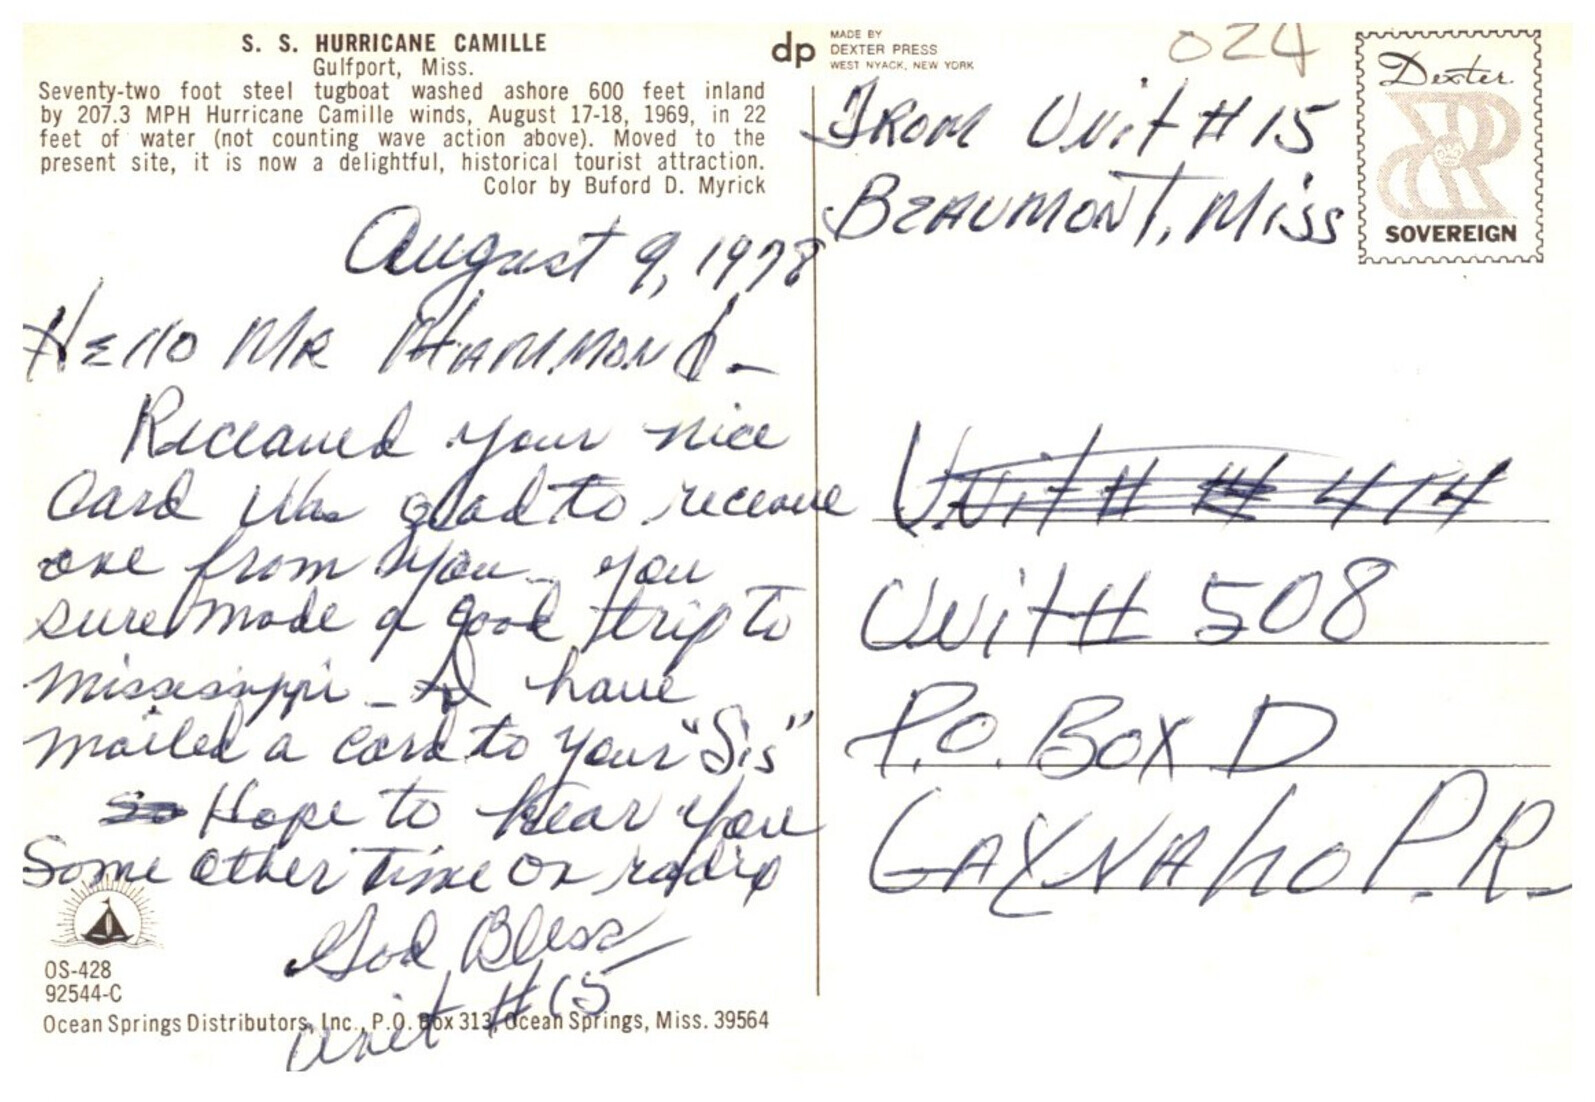 S. S. HURRICANE CAMILLE
Gulfport, Miss.
Seventy-two foot steel tugboat washed ashore 600 feet inland
by 207.3 MPH Hurricane Camille winds, August 17-18, 1969, in 22
feet of water (not counting wave action above). Moved to the
present site, it is now a delightful, historical tourist attraction.
Color by Buford D. Myrick
August 9, 1978
Hello Mr Hammond -
Receaved your nice
Card Was glad to receave
one from you - you
sure made a good trip to
Mississippi - I have
mailed a card to your "Sis"
so Hope to hear you
Some other time on radio
God Bless
Unit #15
OS-428
92544-C
Ocean Springs Distributors, Inc., P.O. Box 313, Ocean Springs, Miss. 39564
dp
MADE BY
DEXTER PRESS
WEST NYACK, NEW YORK
024
Dexter
SOVEREIGN
From Unit # 15
Beaumont, Miss
Unit # # 414
Unit # 508
P.O. Box D
GAYNAho P.R.